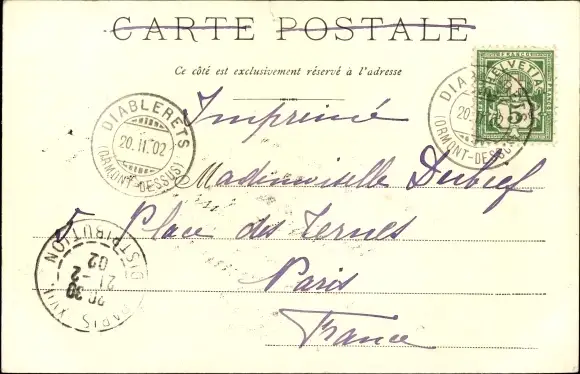 CARTE POSTALE
Ce côté est exclusivement réservé à l'adresse
HELVETIA
FRANCO
5
DIABLERETS
20.II.02
(ORMONT-DESSUS)
DIABLERETS
20.II.02
(ORMONT-DESSUS)
Imprimé
Mademoiselle
5 Place des Ternes
Paris
France
PARIS XVII
DISTRIBUTION
20 30
21-2
02